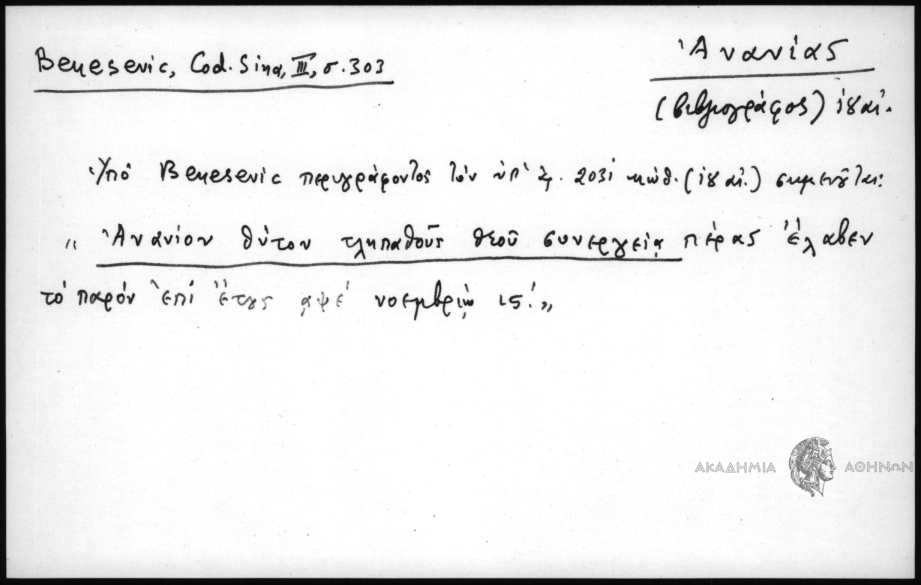 Benesevic, Cod. Sina, III, σ. 303
Ἀνανίας
(βιβλιογράφος) ιη´ αἰ.
Ὑπὸ Benesevic περιγράφοντος τὸν ὑπ' ἀρ. 2031 κώδ. (ιη´ αἰ.) σημειοῦται:
„ Ἀνανίου θύτου τληπαθοῦς θεοῦ συνεργείᾳ πέρας ἔλαβεν
τὸ παρόν ἐπί ἔτους αψέ νοεμβρίῳ ις´.„
ΑΚΑΔΗΜΙΑ ΑΘΗΝΩΝ